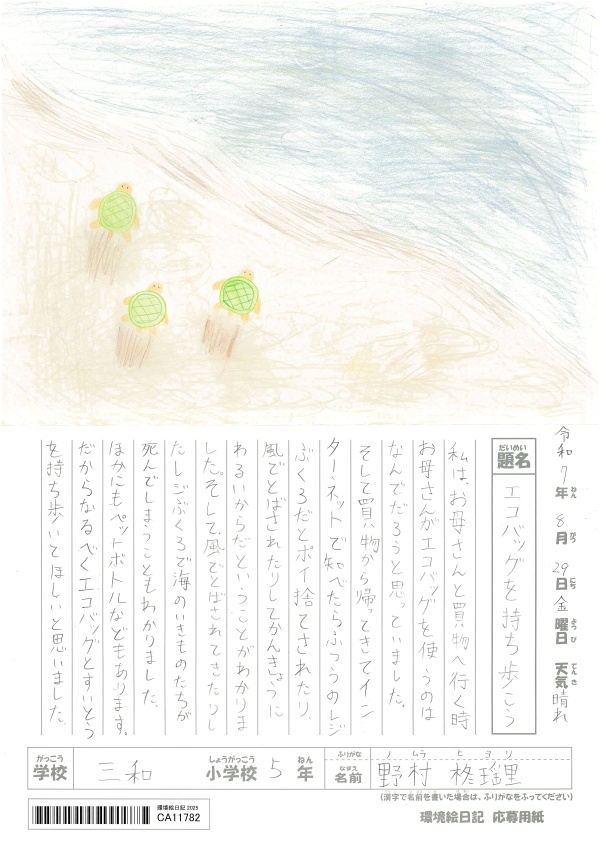 令和7年8月29日金曜日 天気晴れ
題名 エコバッグを持ち歩こう
私は、お母さんと買い物へ行く時
お母さんがエコバッグを使うのは
なんでだろうと思っていました。
そして買い物から帰ってきてイン
ターネットで調べたらふつうのレジ
ぶくろだとポイ捨てされたり、
風でとばされたりしてかんきょうに
わるいからだということがわかりま
した。そして、風でとばされてきたりし
たレジぶくろで海のいきものたちが
死んでしまうこともわかりました。
ほかにもペットボトルなどもあります。
だからなるべくエコバッグとすいとう
を持ち歩いてほしいと思いました。
学校 三和 小学校 5年
ふりがな ノムラ ヒヨリ
名前 野村 柊瑠里
(漢字で名前を書いた場合は、ふりがなをふってください)
環境絵日記2025
CA11782
環境絵日記 応募用紙